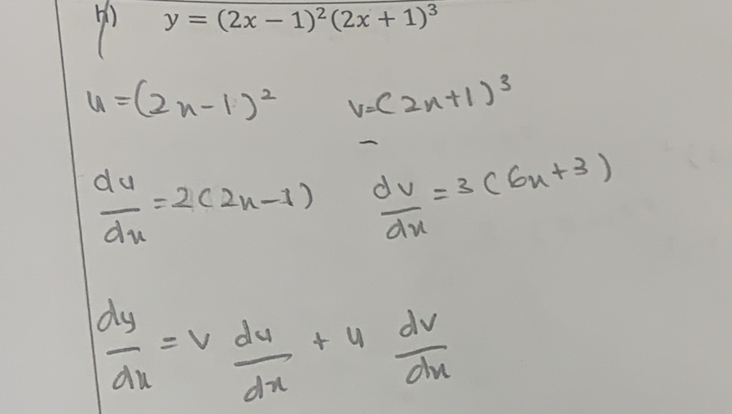 h) y = (2x − 1)²(2x + 1)³
u = (2x-1)² v = (2x+1)³
du/dx = 2(2x-1) dv/dx = 3(6x+3)
dy/dx = v du/dx + u dv/dx